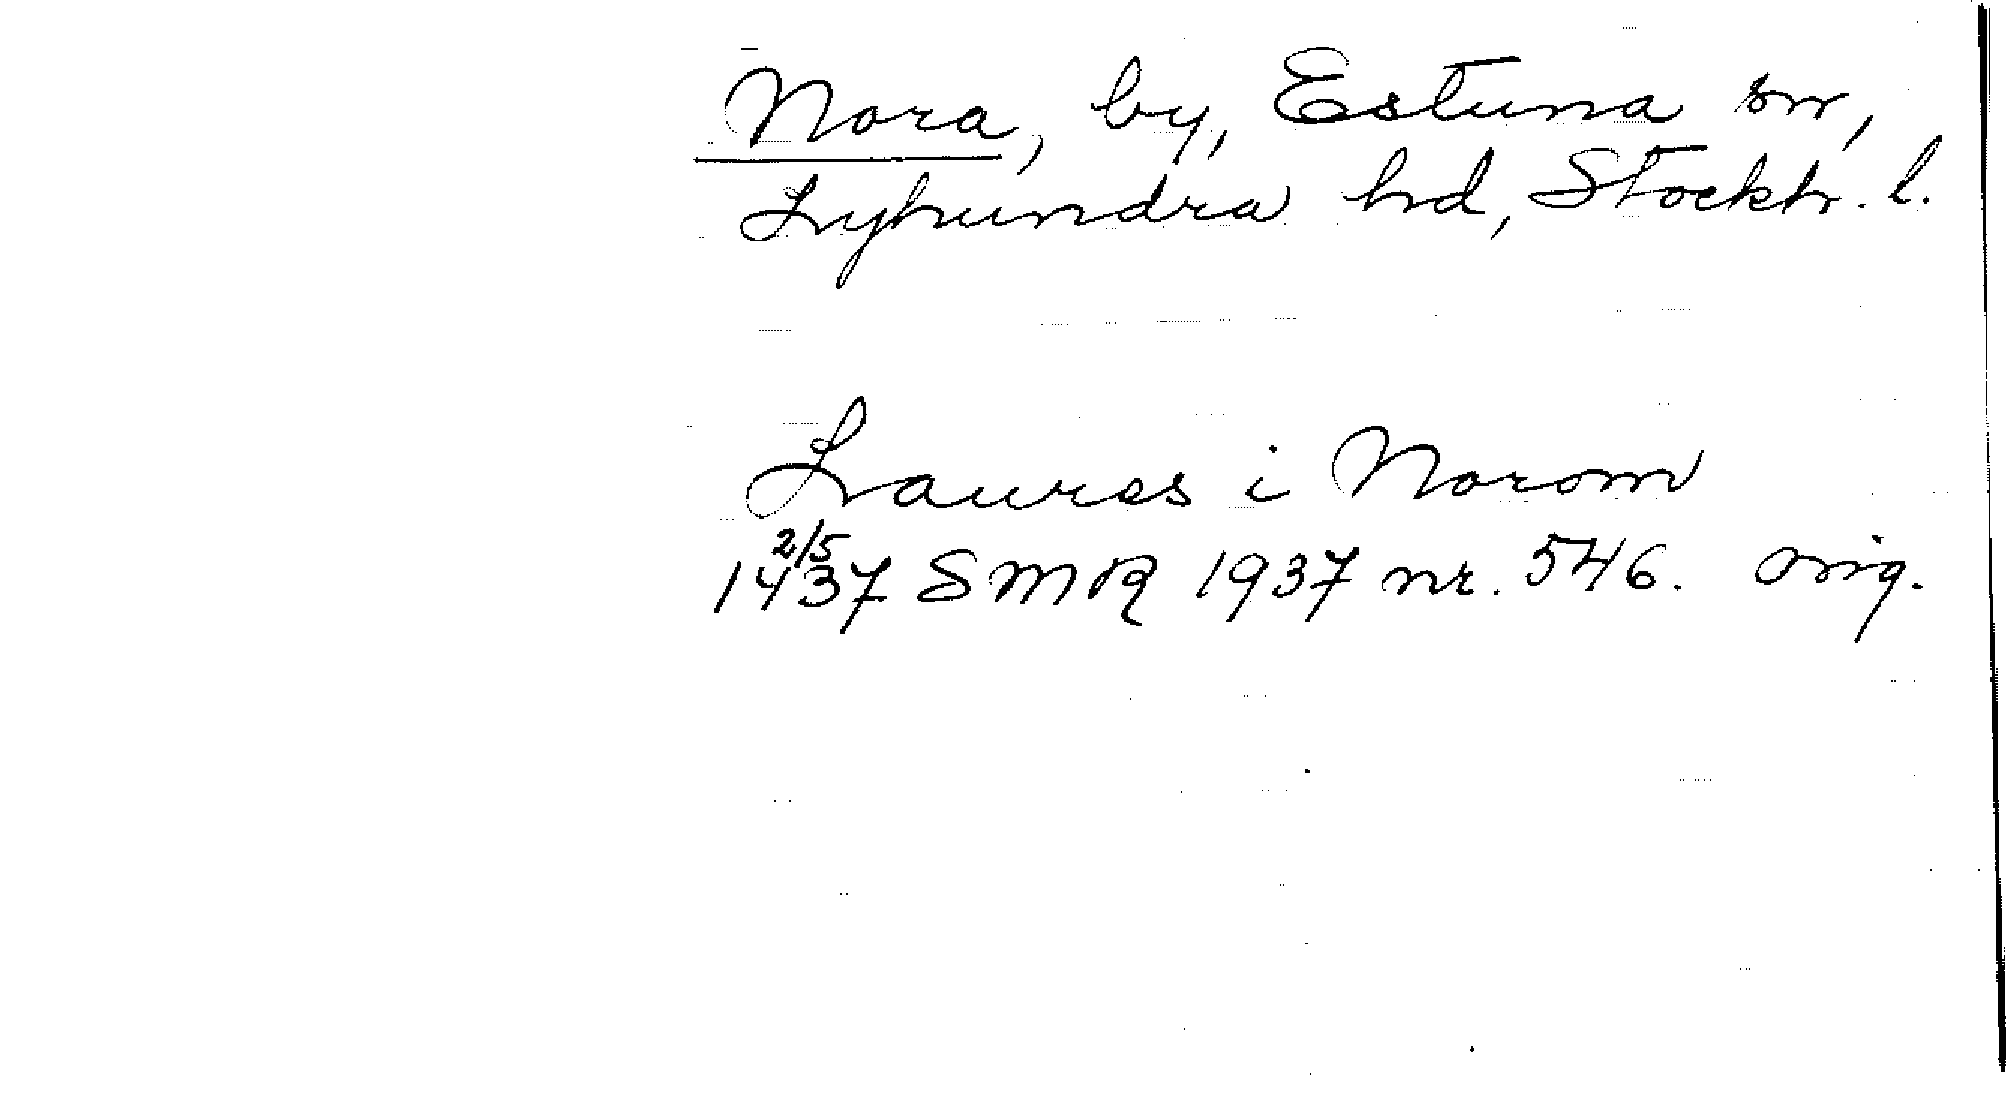 Nora, by, Estuna sn,
Lyhundra hd, Stockh. l.
Laures i Norom
2/5
1437 SMR 1937 nr. 546. orig.